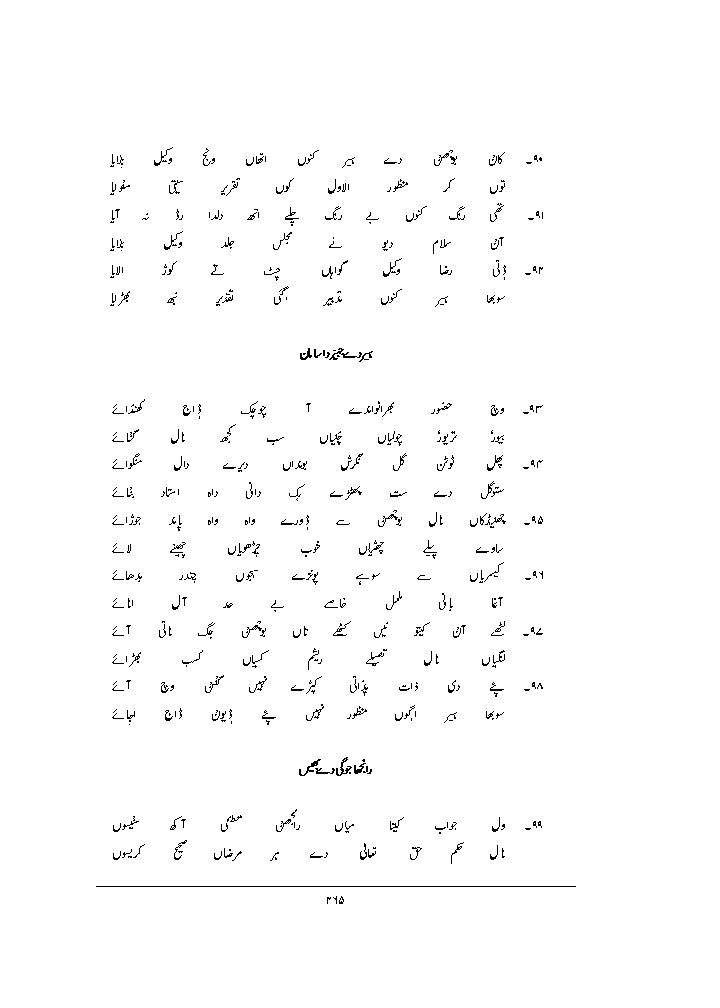 ۹۰۔ کان بوچھنی دے ہیر کنوں اتھاں ونج وکیل بلایا
توں کر منظور الاول کوں تقریر سیتی مقولایا
۹۱۔ تھی رنگ کنوں بے رنگ چلے اتھ دلدا رڈ نہ آیا
آن سلام دیو نے مجلس جلد وکیل بلایا
۹۲۔ ڈتی رضا وکیل گواہاں چٹ تے کوڑ الایا
سوبھا ہیر کنوں تدبیر اگی تقدیر نبھ بھڑلایا
ہیر دے جہیز دا سامان
۹۳۔ وچ حضور بھرانواندے آ چوچک ڈاج کھنڈائے
بیورٔ تریورٔ چولیاں چنیاں سب کجھ نال گھٹائے
۹۴۔ پھل ٹوٹن گل نگرش بونداں دہرے دال منگوائے
ستوگل دے ست پچھڑے بک دانی داہ استاد بنائے
۹۵۔ چھنڈکاں نال بوچھنی سے ڈورے واہ واہ پاند جوڑائے
ساوے پیلے چھٹیاں خوب چڈھویاں چھینے لائے
۹۶۔ کیسریاں سے سوہے پونڑے سجوں چندر بدھائے
آغا بانی ململ خاصے بے حد آل انائے
۹۷۔ لٹھے آن کیتو نیں کٹھے تاں بوچھنی جگ ناتی آئے
لنگیاں نال تھیلے ریشم کسیاں کسب بھڑائے
۹۸۔ پٹے دی ذات پذاتی کپڑے نہیں گنتی وچ آئے
سوبھا ہیر اگوں منظور نہیں پٹے ڈیون ڈاج اجائے
رانجھا جوگی دے بھیس
۹۹۔ ول جواب کیتا میاں رانجھنی مطلبی آکھ سنیسوں
نال حکم حق تعالیٰ دے ہر مرضاں صحیح کریسوں
۲۶۵